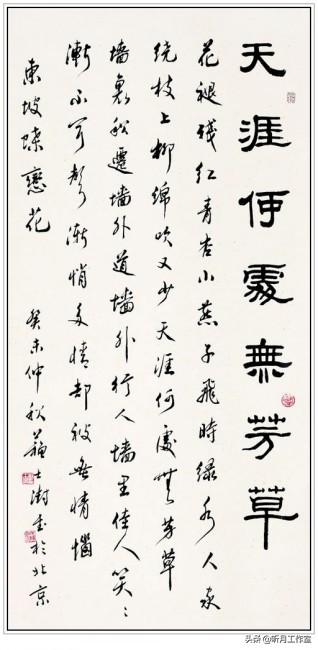 天涯何處無芳草
花褪殘紅青杏小燕子飛時綠水人家
繞枝上柳綿吹又少天涯何處無芳草
墻裏秋遷墻外道墻外行人墻里佳人笑〻
漸不聞聲漸悄多情却被無情惱
東坡蝶戀花
癸未仲秋蘇士澍書於北京
头条@听月工作室